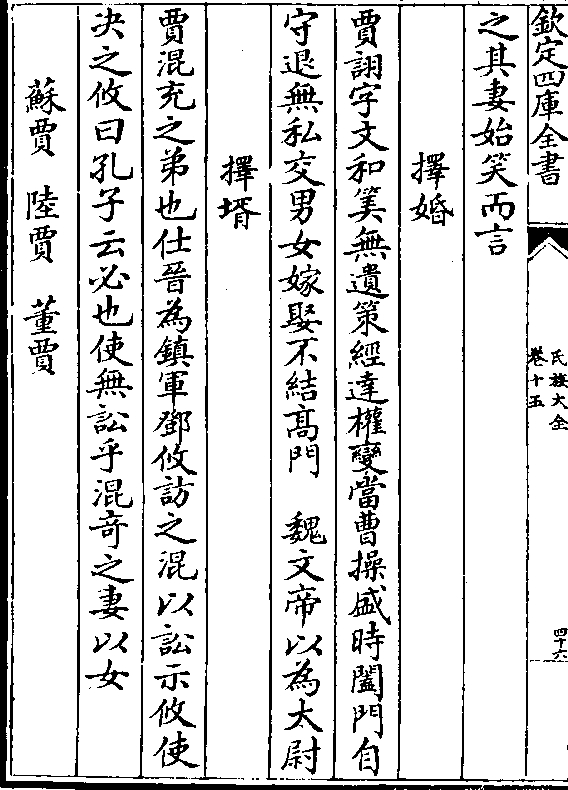 欽定四庫全書
氏族大全
卷十五
四十六
之其妻始笑而言
擇婚
賈詡字文和筭無遺策經達權變當曹操盛時闔門自
守退無私交男女嫁娶不結髙門　魏文帝以為太尉
擇壻
賈混充之弟也仕晉為鎮軍鄧攸訪之混以訟示攸使
决之攸曰孔子云必也使無訟乎混竒之妻以女
蘇賈　陸賈　董賈